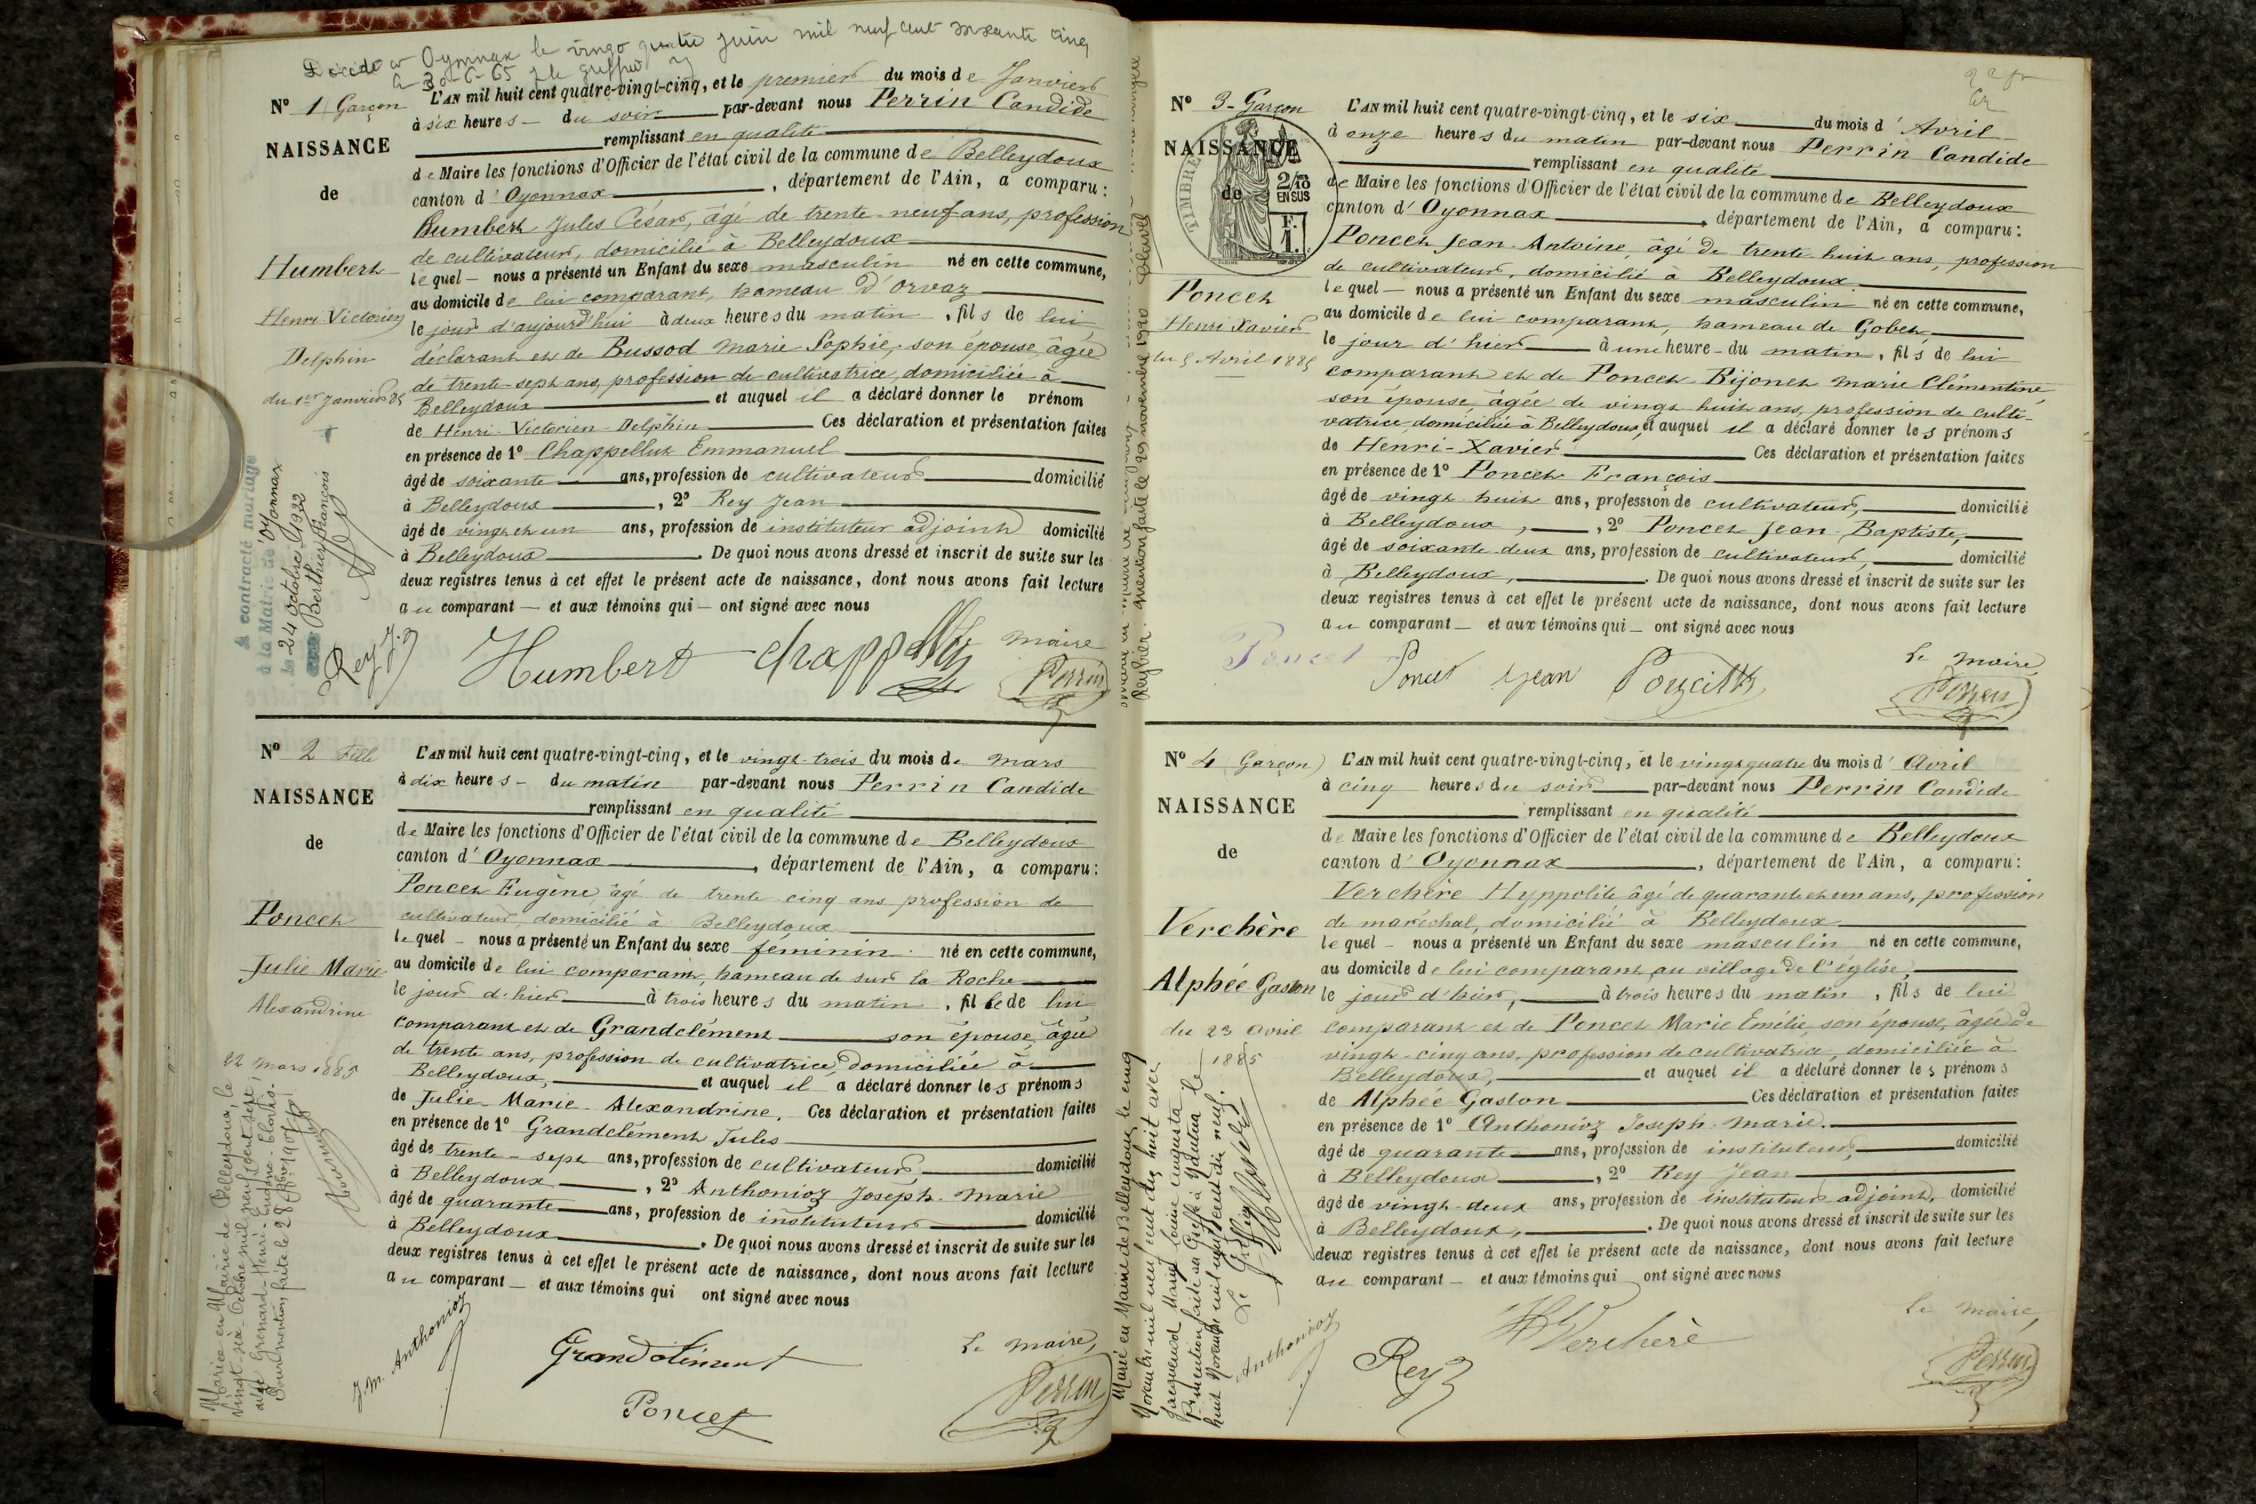 Décédé à Oyonnax le vingt quatre juin mil neuf cent soixante cinq
le 30-6-65 le greffier
N° 1 Garçon
NAISSANCE
de
Humbert
Henri Victorien
Delphin
du 1er Janvier 85
L'AN mil huit cent quatre-vingt-cinq, et le premier du mois de Janvier
à six heures du soir par-devant nous Perrin Candide
remplissant en qualité
de Maire les fonctions d'Officier de l'état civil de la commune de Belleydoux
canton d'Oyonnax, département de l'Ain, a comparu :
Humbert Jules César, âgé de trente-neuf ans, profession
de cultivateur, domicilié à Belleydoux
lequel nous a présenté un Enfant du sexe masculin né en cette commune,
au domicile de lui comparant, hameau d'Orvaz
le jour d'aujourd'hui à deux heures du matin, fils de lui
déclarant et de Bussod Marie Sophie, son épouse, âgée
de trente-sept ans, profession de cultivatrice, domiciliée à
Belleydoux et auquel il a déclaré donner le prénom
de Henri-Victorien-Delphin Ces déclaration et présentation faites
en présence de 1° Chappelluz Emmanuel
âgé de soixante ans, profession de cultivateur domicilié
à Belleydoux, 2° Rey Jean
âgé de vingt et un ans, profession de instituteur adjoint domicilié
à Belleydoux. De quoi nous avons dressé et inscrit de suite sur les
deux registres tenus à cet effet le présent acte de naissance, dont nous avons fait lecture
au comparant et aux témoins qui ont signé avec nous
A contracté mariage
à la Mairie de Oyonnax
le 24 octobre 1922
avec Berthier François
Rey J.
Humbert
Chappelluz
maire
Perrin
N° 2 Fille
NAISSANCE
de
Poncet
Julie Marie
Alexandrine
22 mars 1885
L'AN mil huit cent quatre-vingt-cinq, et le vingt-trois du mois de mars
à dix heures du matin par-devant nous Perrin Candide
remplissant en qualité
de Maire les fonctions d'Officier de l'état civil de la commune de Belleydoux
canton d'Oyonnax, département de l'Ain, a comparu :
Poncet Eugène, âgé de trente cinq ans profession de
cultivateur, domicilié à Belleydoux
lequel nous a présenté un Enfant du sexe féminin né en cette commune,
au domicile de lui comparant, hameau de sur la Roche
le jour d'hier à trois heures du matin, fille de lui
comparant et de Grandclément son épouse, âgée
de trente ans, profession de cultivatrice, domiciliée à
Belleydoux, et auquel il a déclaré donner les prénoms
de Julie-Marie-Alexandrine. Ces déclaration et présentation faites
en présence de 1° Grandclément Jules
âgé de trente-sept ans, profession de cultivateur, domicilié
à Belleydoux, 2° Anthonioz Joseph-Marie
âgé de quarante ans, profession de instituteur domicilié
à Belleydoux. De quoi nous avons dressé et inscrit de suite sur les
deux registres tenus à cet effet le présent acte de naissance, dont nous avons fait lecture
au comparant et aux témoins qui ont signé avec nous
Mariée en Mairie de Belleydoux, le
vingt-six Octobre mil neuf cent sept
avec Grenard-Henri-Eugène-Charles.
Pour mention, faite le 28 1907
J. M. Anthonioz
Grandclément
Poncet
Le Maire,
Perrin
N° 3 Garçon
NAISSANCE
de
TIMBRE
2/10
EN SUS
F.
1.
Poncet
Henri Xavier
du 5 Avril 1885
L'AN mil huit cent quatre-vingt-cinq, et le six du mois d'Avril
à onze heures du matin par-devant nous Perrin Candide
remplissant en qualité
de Maire les fonctions d'Officier de l'état civil de la commune de Belleydoux
canton d'Oyonnax, département de l'Ain, a comparu :
Poncet Jean-Antoine, âgé de trente huit ans, profession
de cultivateur, domicilié à Belleydoux
lequel nous a présenté un Enfant du sexe masculin né en cette commune,
au domicile de lui comparant, hameau de Gobet,
le jour d'hier à une heure du matin, fils de lui
comparant et de Poncet Bijonet Marie Clémentine,
son épouse, âgée de vingt huit ans, profession de culti-
vatrice, domiciliée à Belleydoux, et auquel il a déclaré donner les prénoms
de Henri-Xavier. Ces déclaration et présentation faites
en présence de 1° Poncet François
âgé de vingt huit ans, profession de cultivateur, domicilié
à Belleydoux, 2° Poncet Jean-Baptiste,
âgé de soixante-deux ans, profession de cultivateur, domicilié
à Belleydoux,. De quoi nous avons dressé et inscrit de suite sur les
deux registres tenus à cet effet le présent acte de naissance, dont nous avons fait lecture
au comparant et aux témoins qui ont signé avec nous
mention faite le 29 novembre 1920
Poncet
Poncet Jean
Le Maire
Perrin
N° 4 Garçon
NAISSANCE
de
Verchère
Alphée Gaston
du 23 Avril
1885
L'AN mil huit cent quatre-vingt-cinq, et le vingt quatre du mois d'Avril
à cinq heures du soir par-devant nous Perrin Candide
remplissant en qualité
de Maire les fonctions d'Officier de l'état civil de la commune de Belleydoux
canton d'Oyonnax, département de l'Ain, a comparu :
Verchère Hyppolite, âgé de quarante et un ans, profession
de maréchal, domicilié à Belleydoux
lequel nous a présenté un Enfant du sexe masculin né en cette commune,
au domicile de lui comparant, au village de l'église,
le jour d'hier, à trois heures du matin, fils de lui
comparant et de Poncet Marie Emélie, son épouse, âgée de
vingt-cinq ans, profession de cultivatrice, domiciliée à
Belleydoux, et auquel il a déclaré donner les prénoms
de Alphée-Gaston Ces déclaration et présentation faites
en présence de 1° Anthonioz Joseph-Marie.
âgé de quarante ans, profession de instituteur, domicilié
à Belleydoux, 2° Rey Jean
âgé de vingt-deux ans, profession de instituteur adjoint, domicilié
à Belleydoux,. De quoi nous avons dressé et inscrit de suite sur les
deux registres tenus à cet effet le présent acte de naissance, dont nous avons fait lecture
au comparant et aux témoins qui ont signé avec nous
Marié en Mairie de Belleydoux, le cinq
Novembre mil neuf cent dix huit avec
Marie Louise Augusta
P. mention faite au Greffe à Nantua le
huit Novembre mil neuf cent dix neuf.
Le Greffier
Anthonioz
Rey
H Verchère
Le Maire,
Perrin